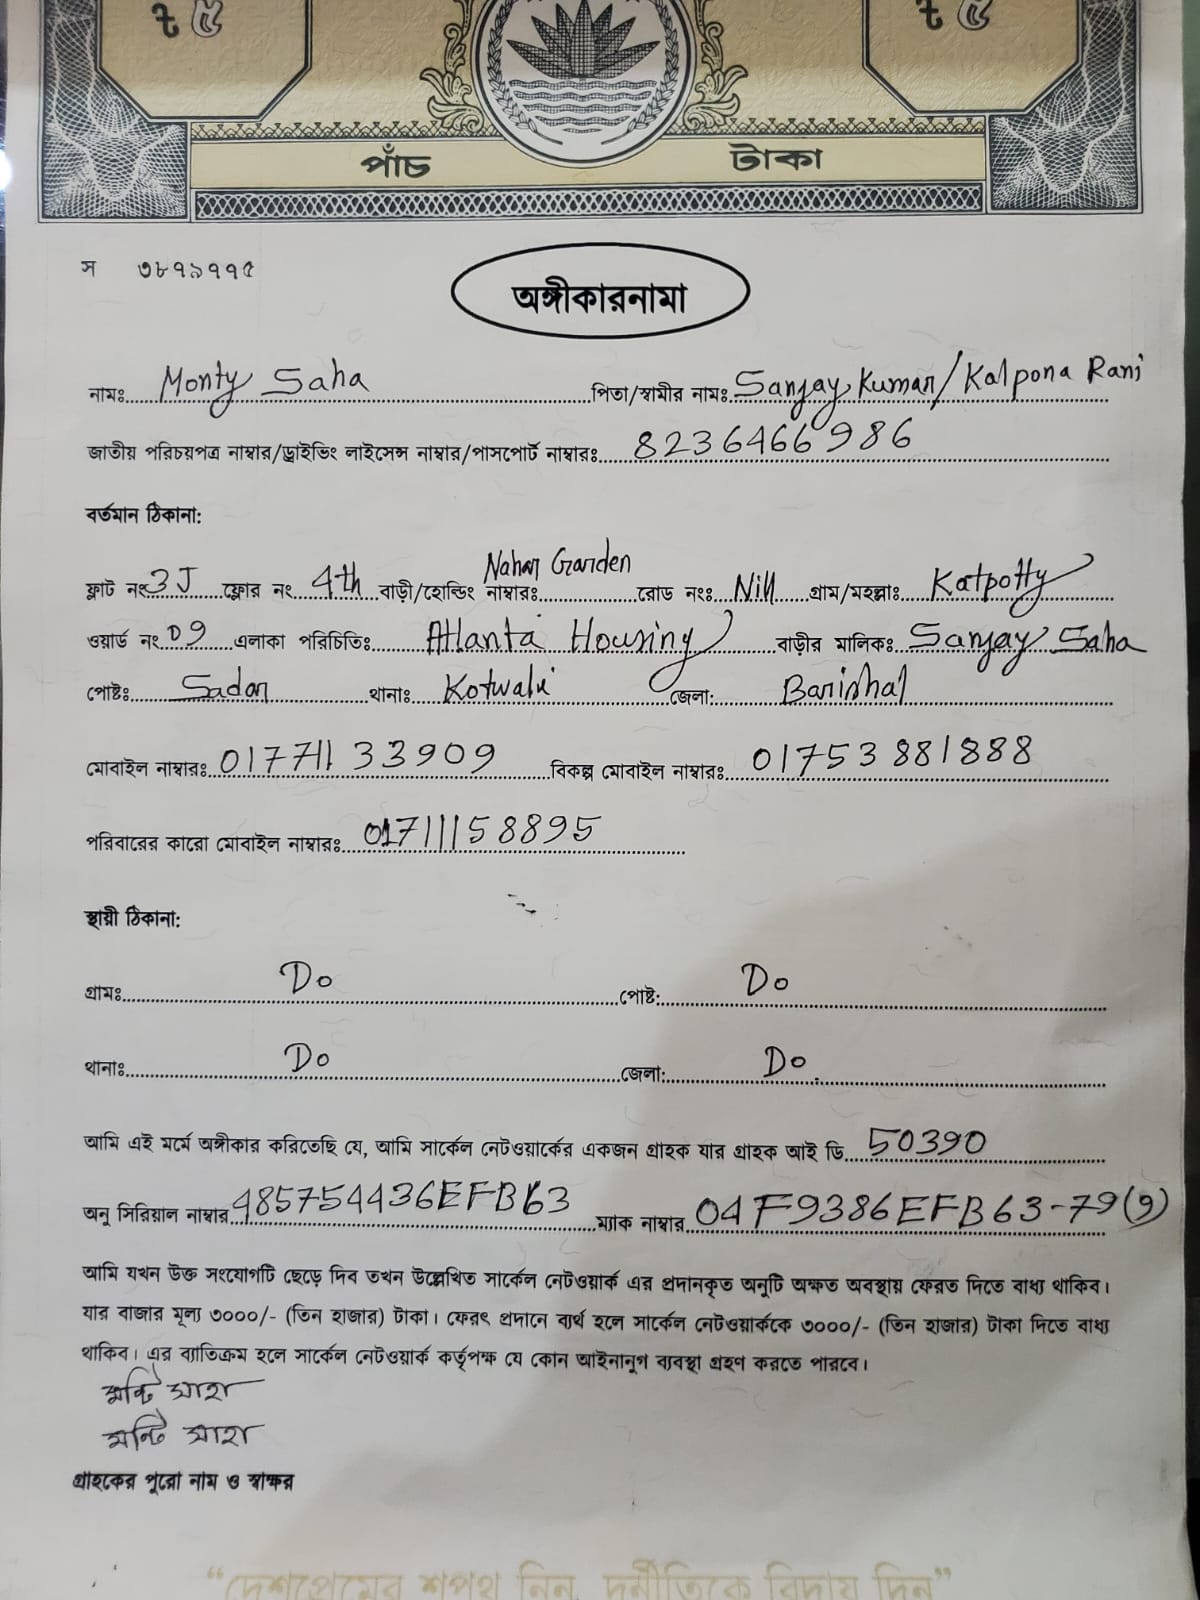 ৳ ৫ ৳ ৫
পাঁচ টাকা
স ৩৮৭৯৭৭৫
অঙ্গীকারনামা
নামঃ Monty Saha পিতা/স্বামীর নামঃ Sanjay Kumar/Kalpona Rani
জাতীয় পরিচয়পত্র নাম্বার/ড্রাইভিং লাইসেন্স নাম্বার/পাসপোর্ট নাম্বারঃ 8236466986
বর্তমান ঠিকানা:
ফ্লাট নং 3J ফ্লোর নং 4th বাড়ী/হোল্ডিং নাম্বারঃ Nahar Garden রোড নংঃ Nill গ্রাম/মহল্লাঃ Katpotty
ওয়ার্ড নং 09 এলাকা পরিচিতিঃ Atlanta Housing বাড়ীর মালিকঃ Sanjay Saha
পোষ্টঃ Sadar থানাঃ Kotwali জেলা: Barishal
মোবাইল নাম্বারঃ 01771133909 বিকল্প মোবাইল নাম্বারঃ 01753881888
পরিবারের কারো মোবাইল নাম্বারঃ 01711158895
স্থায়ী ঠিকানা:
গ্রামঃ Do পোষ্ট: Do
থানাঃ Do জেলা: Do
আমি এই মর্মে অঙ্গীকার করিতেছি যে, আমি সার্কেল নেটওয়ার্কের একজন গ্রাহক যার গ্রাহক আই ডি 50390
অনু সিরিয়াল নাম্বার 485754436EFB63 ম্যাক নাম্বার 04F9386EFB63-79(9)
আমি যখন উক্ত সংযোগটি ছেড়ে দিব তখন উল্লেখিত সার্কেল নেটওয়ার্ক এর প্রদানকৃত অনুটি অক্ষত অবস্থায় ফেরত দিতে বাধ্য থাকিব।
যার বাজার মূল্য ৩০০০/- (তিন হাজার) টাকা। ফেরৎ প্রদানে ব্যর্থ হলে সার্কেল নেটওয়ার্ককে ৩০০০/- (তিন হাজার) টাকা দিতে বাধ্য
থাকিব। এর ব্যাতিক্রম হলে সার্কেল নেটওয়ার্ক কর্তৃপক্ষ যে কোন আইনানুগ ব্যবস্থা গ্রহণ করতে পারবে।
মন্টি সাহা
মন্টি সাহা
গ্রাহকের পুরো নাম ও স্বাক্ষর
“দেশপ্রেমের শপথ নিন, দুর্নীতিকে বিদায় দিন”